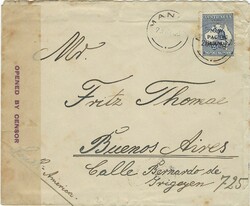 MAN
N.W.
PACIFIC
ISLANDS
OPENED BY CENSOR
Mr.
Fritz Thomae
Buenos Aires
Calle Bernardo de
Irigoyen 725
S. America